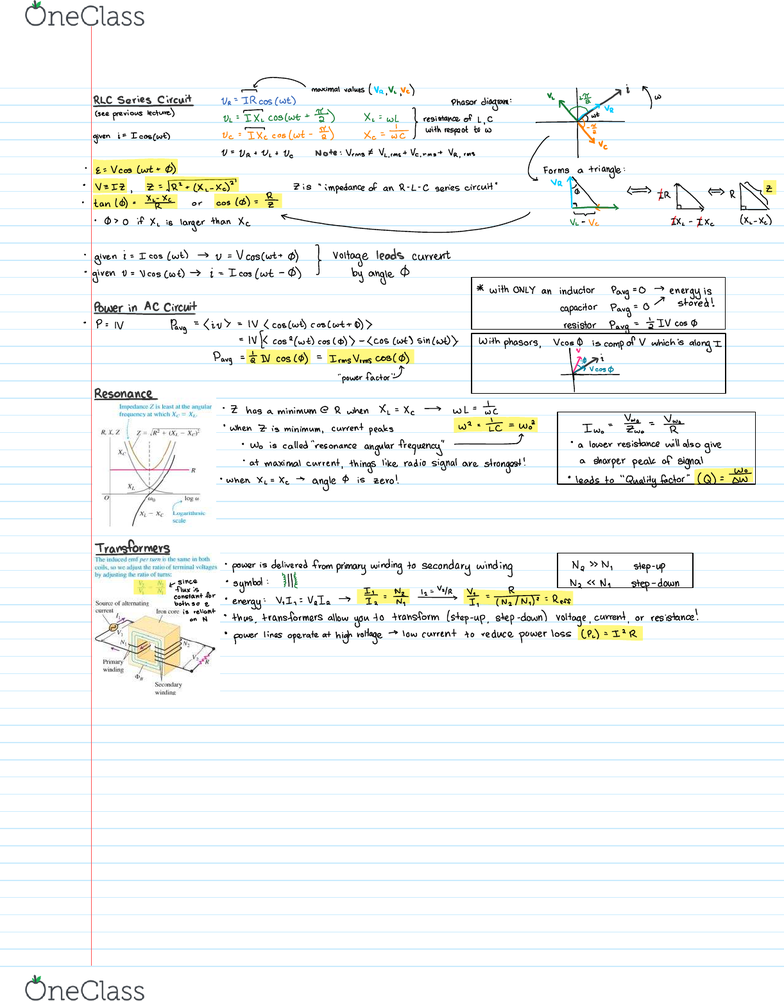 OneClass
RLC Series Circuit
(see previous lecture)
given i = I cos(ωt)
maximal values (V_R, V_L, V_C)
v_R = IR cos(ωt)
v_L = I X_L cos(ωt + π/2)
v_C = I X_C cos(ωt - π/2)
v = v_R + v_L + v_C
X_L = ωL
X_C = 1/ωC
resistance of L, C
with respect to ω
Note: V_rms ≠ V_L,rms + V_C,rms + V_R,rms
Phasor diagram:
V_L
i
V_R
ωt
V_C
ω
· ε = V cos (ωt + ϕ)
· V = IZ, Z = √(R² + (X_L - X_C)²)
Z is "impedance of an R-L-C series circuit"
· tan (ϕ) = (X_L - X_C)/R or cos (ϕ) = R/Z
· ϕ > 0 if X_L is larger than X_C
Forms a triangle:
V_R
ϕ
V_L - V_C
⟺
IR
IX_L - IX_C
⟺
R
Z
(X_L - X_C)
· given i = I cos (ωt) → v = V cos(ωt + ϕ)
· given v = V cos(ωt) → i = I cos (ωt - ϕ)
voltage leads current
by angle ϕ
* with ONLY an inductor P_avg = 0 → energy is
stored!
capacitor P_avg = 0
resistor P_avg = 1/2 IV cos ϕ
Power in AC Circuit
· P = IV P_avg = <iv> = IV <cos(ωt) cos(ωt+ϕ)>
= IV[< cos²(ωt) cos(ϕ)> - <cos (ωt) sin(ωt)>
P_avg = 1/2 IV cos (ϕ) = I_rms V_rms cos(ϕ)
"power factor"
With phasors, V cos ϕ is comp of V which is along I
V
ϕ
i
V cos ϕ
Resonance
Impedance Z is least at the angular
frequency at which X_C = X_L.
R, I, Z
Z = √R² + (X_L - X_C)²
X_C
R
X_L
O
ω₀
log ω
X_L - X_C
Logarithmic
scale
· Z has a minimum @ R when X_L = X_C → ωL = 1/ωC
· when Z is minimum, current peaks
ω² = 1/LC = ω₀²
· ω₀ is called "resonance angular frequency"
· at maximal current, things like radio signal are strongest!
· when X_L = X_C → angle ϕ is zero!
I_ω₀ = V_ω₀/Z_ω₀ = V_ω₀/R
· a lower resistance will also give
a sharper peak of signal
· leads to "Quality factor" (Q) = ω₀/Δω
Transformers
The induced emf per turn is the same in both
coils, so we adjust the ratio of terminal voltages
by adjusting the ratio of turns:
V₂/V₁ = N₂/N₁
since
flux is
constant for
both so ε
is reliant
on N
Source of alternating
current
Iron core
I₁
V₁
N₁
N₂
V₂
R
Primary
winding
Φ_B
Secondary
winding
· power is delivered from primary winding to secondary winding
· symbol:
· energy: V₁I₁ = V₂I₂ → I₁/I₂ = N₂/N₁ I₂ = V₂/R → V₁/I₁ = R/(N₂/N₁)² = R_eff
· thus, transformers allow you to transform (step-up, step-down) voltage, current, or resistance!
· power lines operate at high voltage → low current to reduce power loss (P_L) = I²R
N₂ >> N₁ step-up
N₂ << N₁ step-down
OneClass